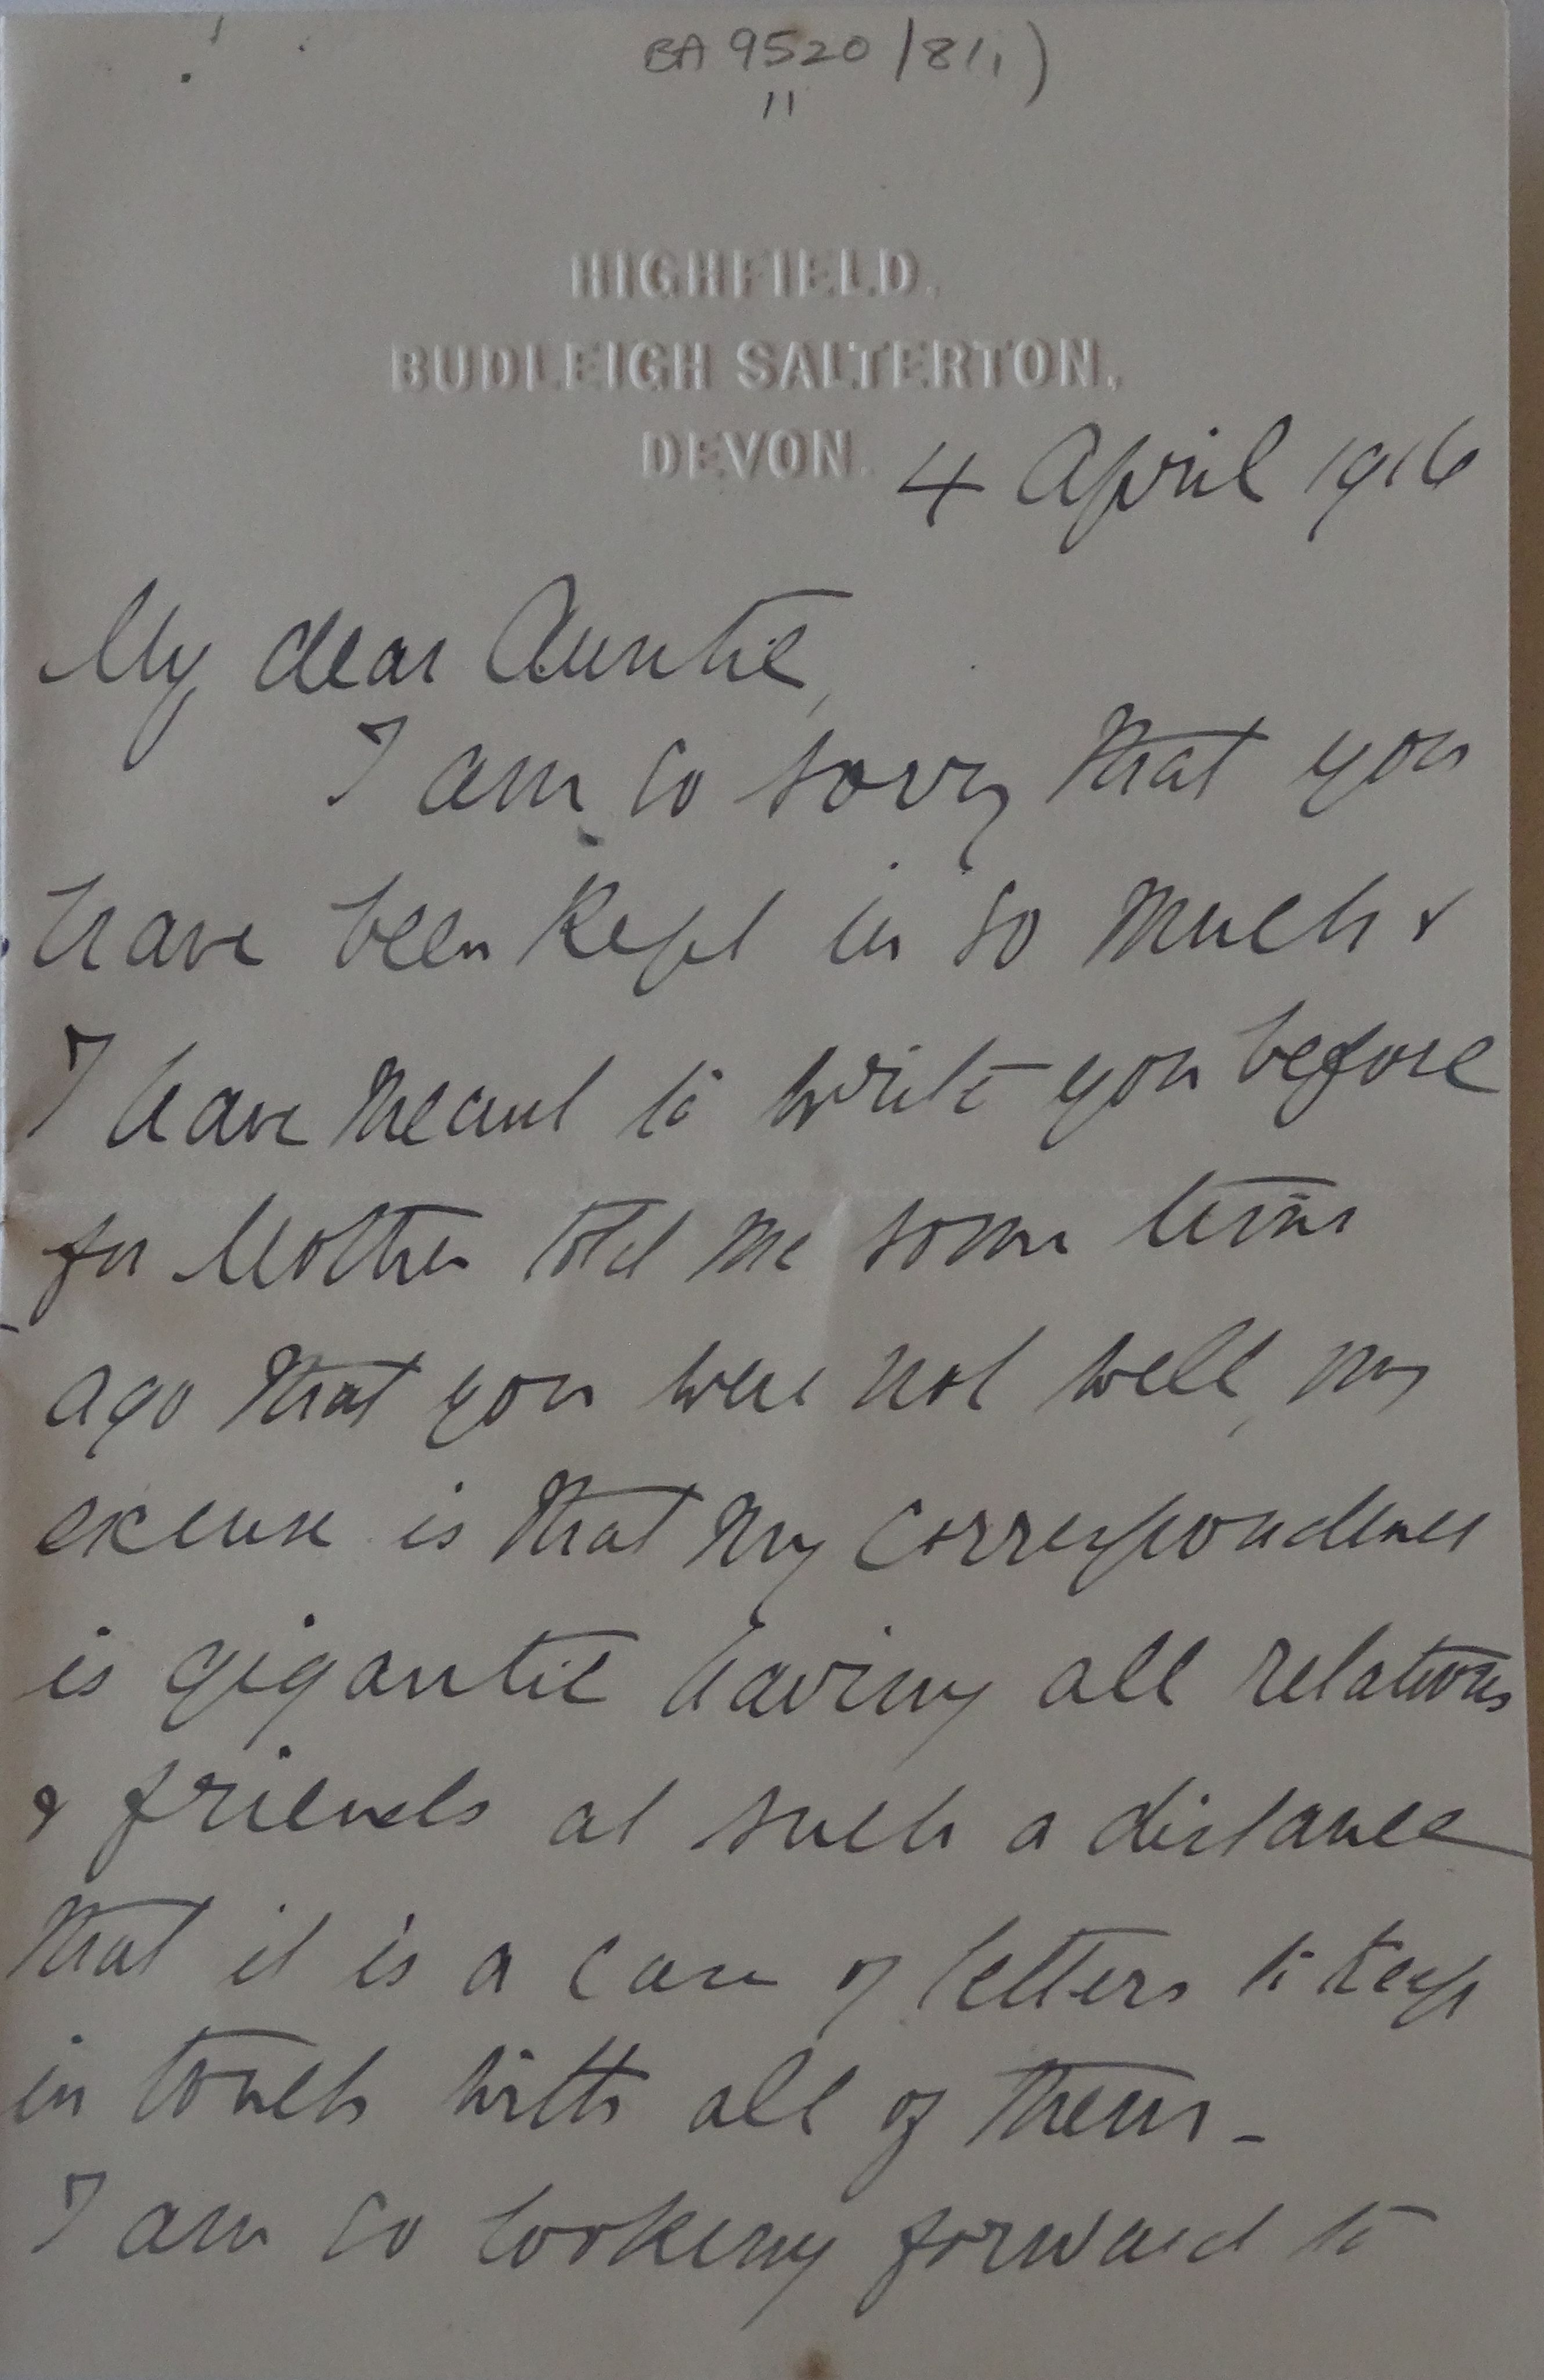 BA 9520/8(i)
11
HIGHFIELD.
BUDLEIGH SALTERTON,
DEVON.
4 April 1916
My dear Auntie,
I am so sorry that you
have been kept in so much &
I have meant to write you before
for Mother told me some time
ago that you were not well, my
excuse is that my correspondence
is gigantic having all relations
& friends at such a distance
that it is a case of letters to keep
in touch with all of them -
I am so looking forward to